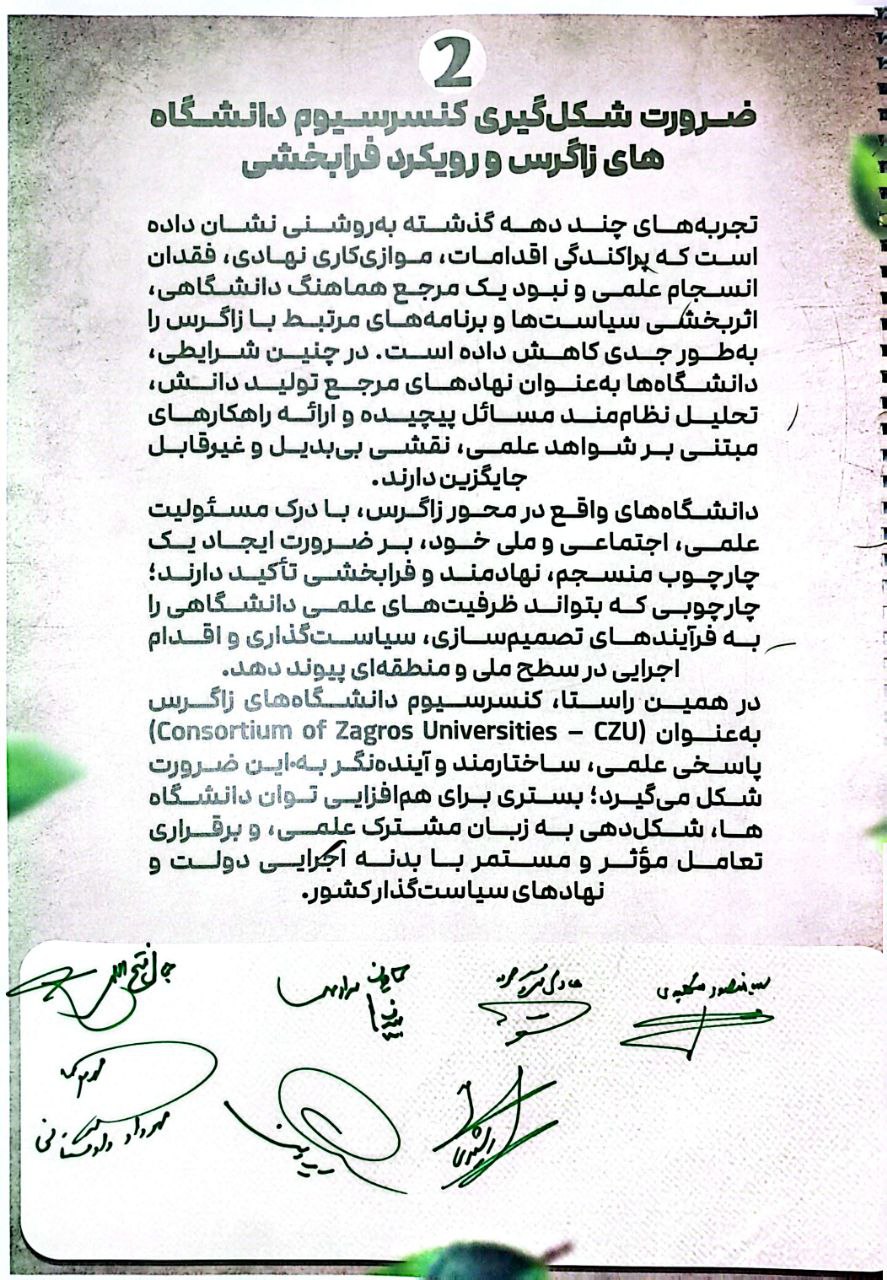 2
ضرورت شکل‌گیری کنسرسیوم دانشگاه
های زاگرس و رویکرد فرابخشی
تجربه‌های چند دهه گذشته به‌روشنی نشان داده
است که پراکندگی اقدامات، موازی‌کاری نهادی، فقدان
انسجام علمی و نبود یک مرجع هماهنگ دانشگاهی،
اثربخشی سیاست‌ها و برنامه‌های مرتبط با زاگرس را
به‌طور جدی کاهش داده است. در چنین شرایطی،
دانشگاه‌ها به‌عنوان نهادهای مرجع تولید دانش،
تحلیل نظام‌مند مسائل پیچیده و ارائه راهکارهای
مبتنی بر شواهد علمی، نقشی بی‌بدیل و غیرقابل
جایگزین دارند.
دانشگاه‌های واقع در محور زاگرس، با درک مسئولیت
علمی، اجتماعی و ملی خود، بر ضرورت ایجاد یک
چارچوب منسجم، نهادمند و فرابخشی تأکید دارند؛
چارچوبی که بتواند ظرفیت‌های علمی دانشگاهی را
به فرآیندهای تصمیم‌سازی، سیاست‌گذاری و اقدام
اجرایی در سطح ملی و منطقه‌ای پیوند دهد.
در همین راستا، کنسرسیوم دانشگاه‌های زاگرس
(Consortium of Zagros Universities – CZU) به‌عنوان
پاسخی علمی، ساختارمند و آینده‌نگر به این ضرورت
شکل می‌گیرد؛ بستری برای هم‌افزایی توان دانشگاه
ها، شکل‌دهی به زبان مشترک علمی، و برقراری
تعامل مؤثر و مستمر با بدنه اجرایی دولت و
نهادهای سیاست‌گذار کشور.
مهرداد دادستانی